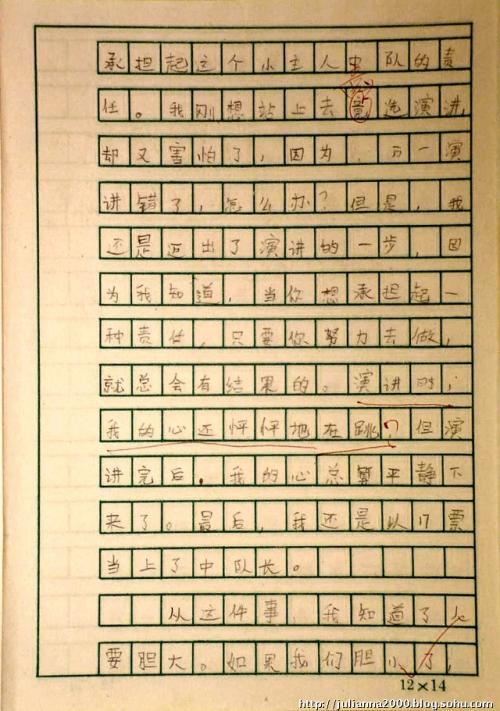 承担起这个小主人中队的责
任。我刚想站上去竞选演讲,
却又害怕了,因为,万一演
讲错了,怎么办?但是,我
还是迈出了演讲的一步,因
为我知道,当你想承担起一
种责任,只要你努力去做,
就总会有结果的。演讲时,
我的心还怦怦地在跳,但演
讲完后,我的心总算平静下
来了。最后,我还是以17票
当上了中队长。
从这件事,我知道了
要胆大。如果我们胆小了,
12×14
http://julianna2000.blog.sohu.com